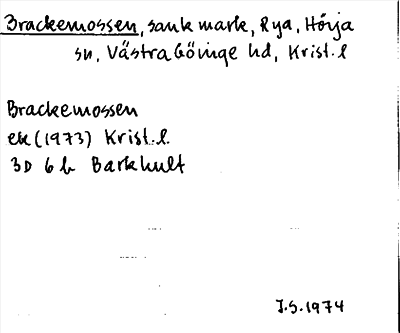 Brackemossen, sank mark, Rya, Hörja
sn, Västra Göinge hd, Krist.l
Brackemossen
ek (1973) Krist.l.
3D 6b Barkhult
J.S. 1974